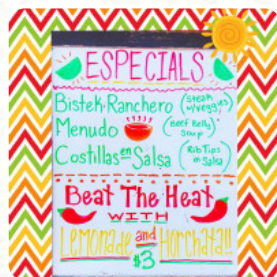 ESPECIALS
Bistek Ranchero (Steak w/veggies)
Menudo (Beef Belly Soup)
Costillas en Salsa (Rib Tips in Salsa)
Beat The Heat
WITH
Lemonade and Horchata!!
$3